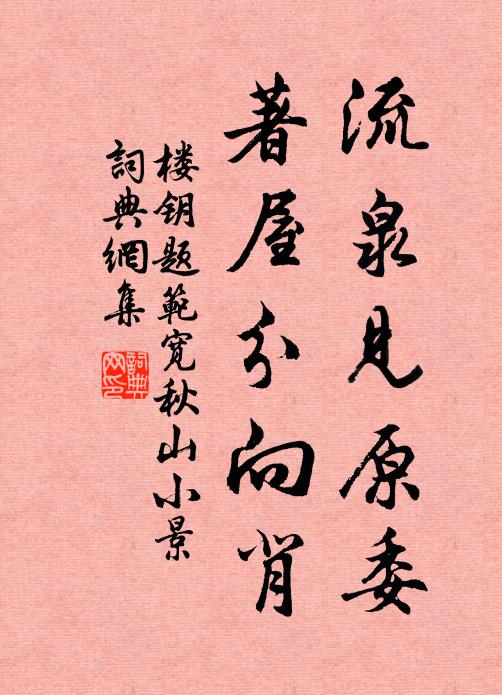 流泉见原委
著屋分向背
楼钥题範宽秋山小景
詞典網集
詞典網印